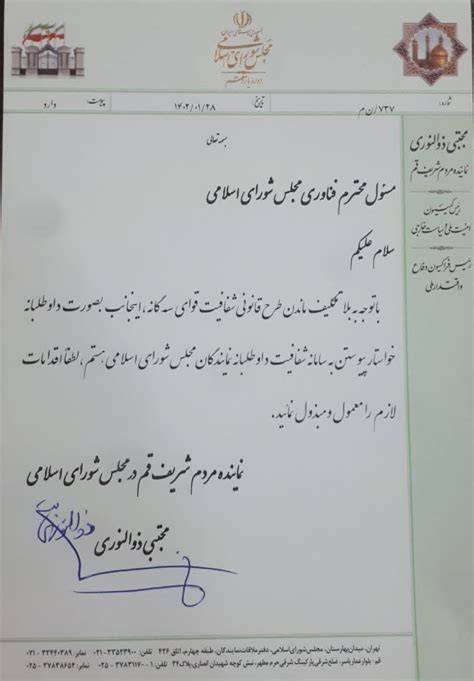 جمهوری اسلامی ایران
مجلس شورای اسلامی
دوره یازدهم
شماره: ۷۳۷/ن م
تاریخ: ۱۴۰۲/۰۱/۲۸
پیوست: دارد
مجتبی ذوالنوری
نماینده مردم شریف قم
رئیس کمیسیون
امنیت ملی و سیاست خارجی
رئیس فراکسیون دفاع
و اقتدار ملی
بسمه تعالی
مسئول محترم فناوری مجلس شورای اسلامی
سلام علیکم
باتوجه به بلا تکلیف ماندن طرح قانونی شفافیت قوای سه گانه، اینجانب بصورت داوطلبانه
خواستار پیوستن به سامانه شفافیت داوطلبانه نمایندگان مجلس شورای اسلامی هستم، لطفا اقدامات
لازم را معمول و مبذول نمائید.
نماینده مردم شریف قم در مجلس شورای اسلامی
مجتبی ذوالنوری
ذوالنوری
تهران، میدان بهارستان، مجلس شورای اسلامی، دفتر ملاقات نمایندگان، طبقه چهارم، اتاق ۴۳۶ تلفن: ۳۳۵۲۳۹۰۰-۰۲۱ نمابر: ۳۳۴۴۰۳۸۹-۰۲۱
قم: بلوار عمار یاسر، ضلع شرقی پارکینگ شرقی حرم مطهر، نبش کوچه شهیدان انصاری، پلاک ۳۴ تلفن: ۱-۳۷۸۳۱۱۷۰-۰۲۵ نمابر: ۳۷۸۳۸۶۵۴-۰۲۵